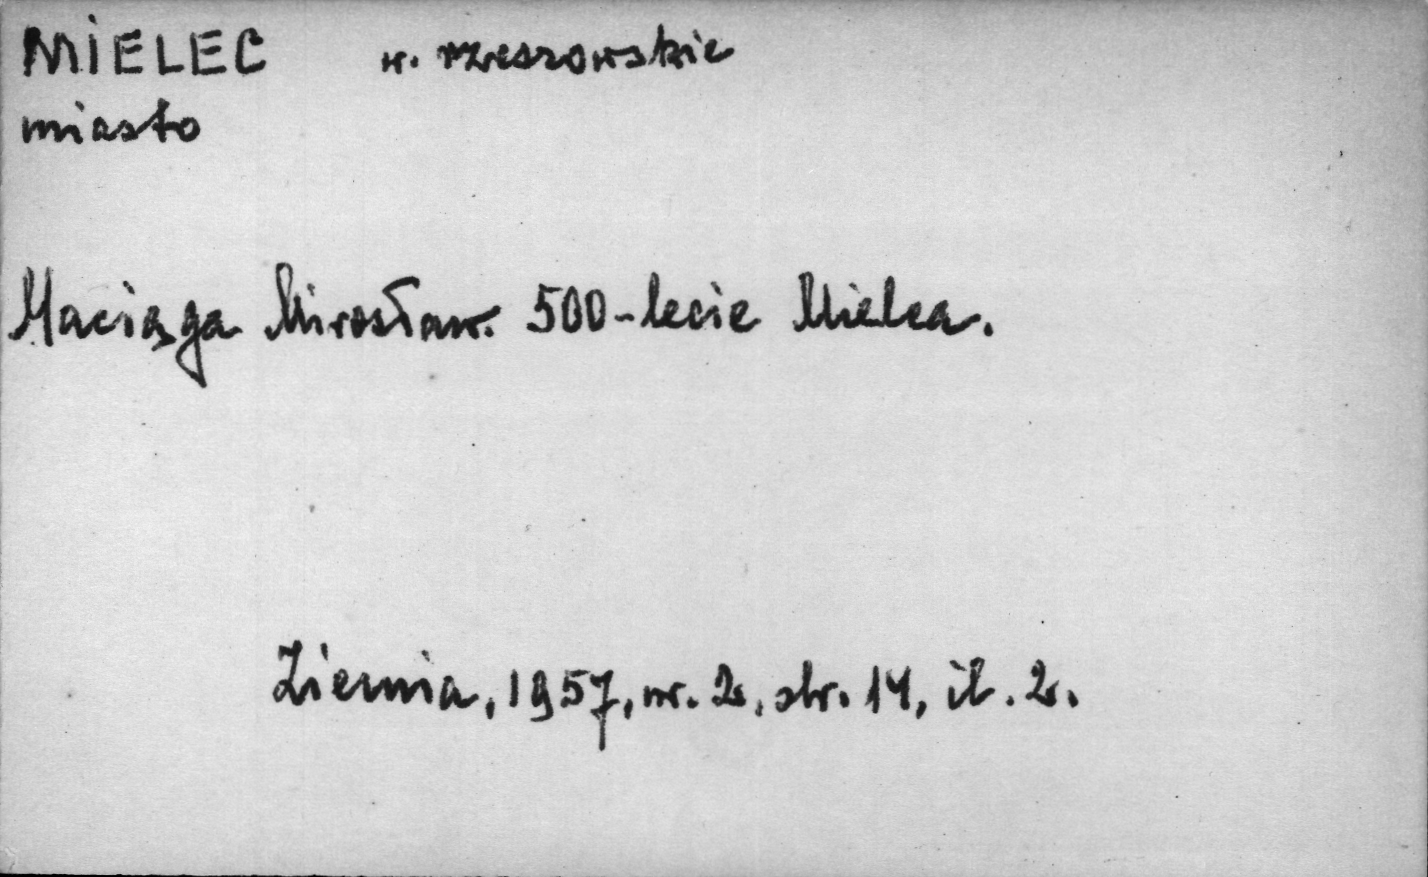 MIELEC w. rzeszowskie
miasto
Maciąga Mirosław. 500-lecie Mielca.
Ziemia, 1957, nr. 2, str. 14, il. 2.